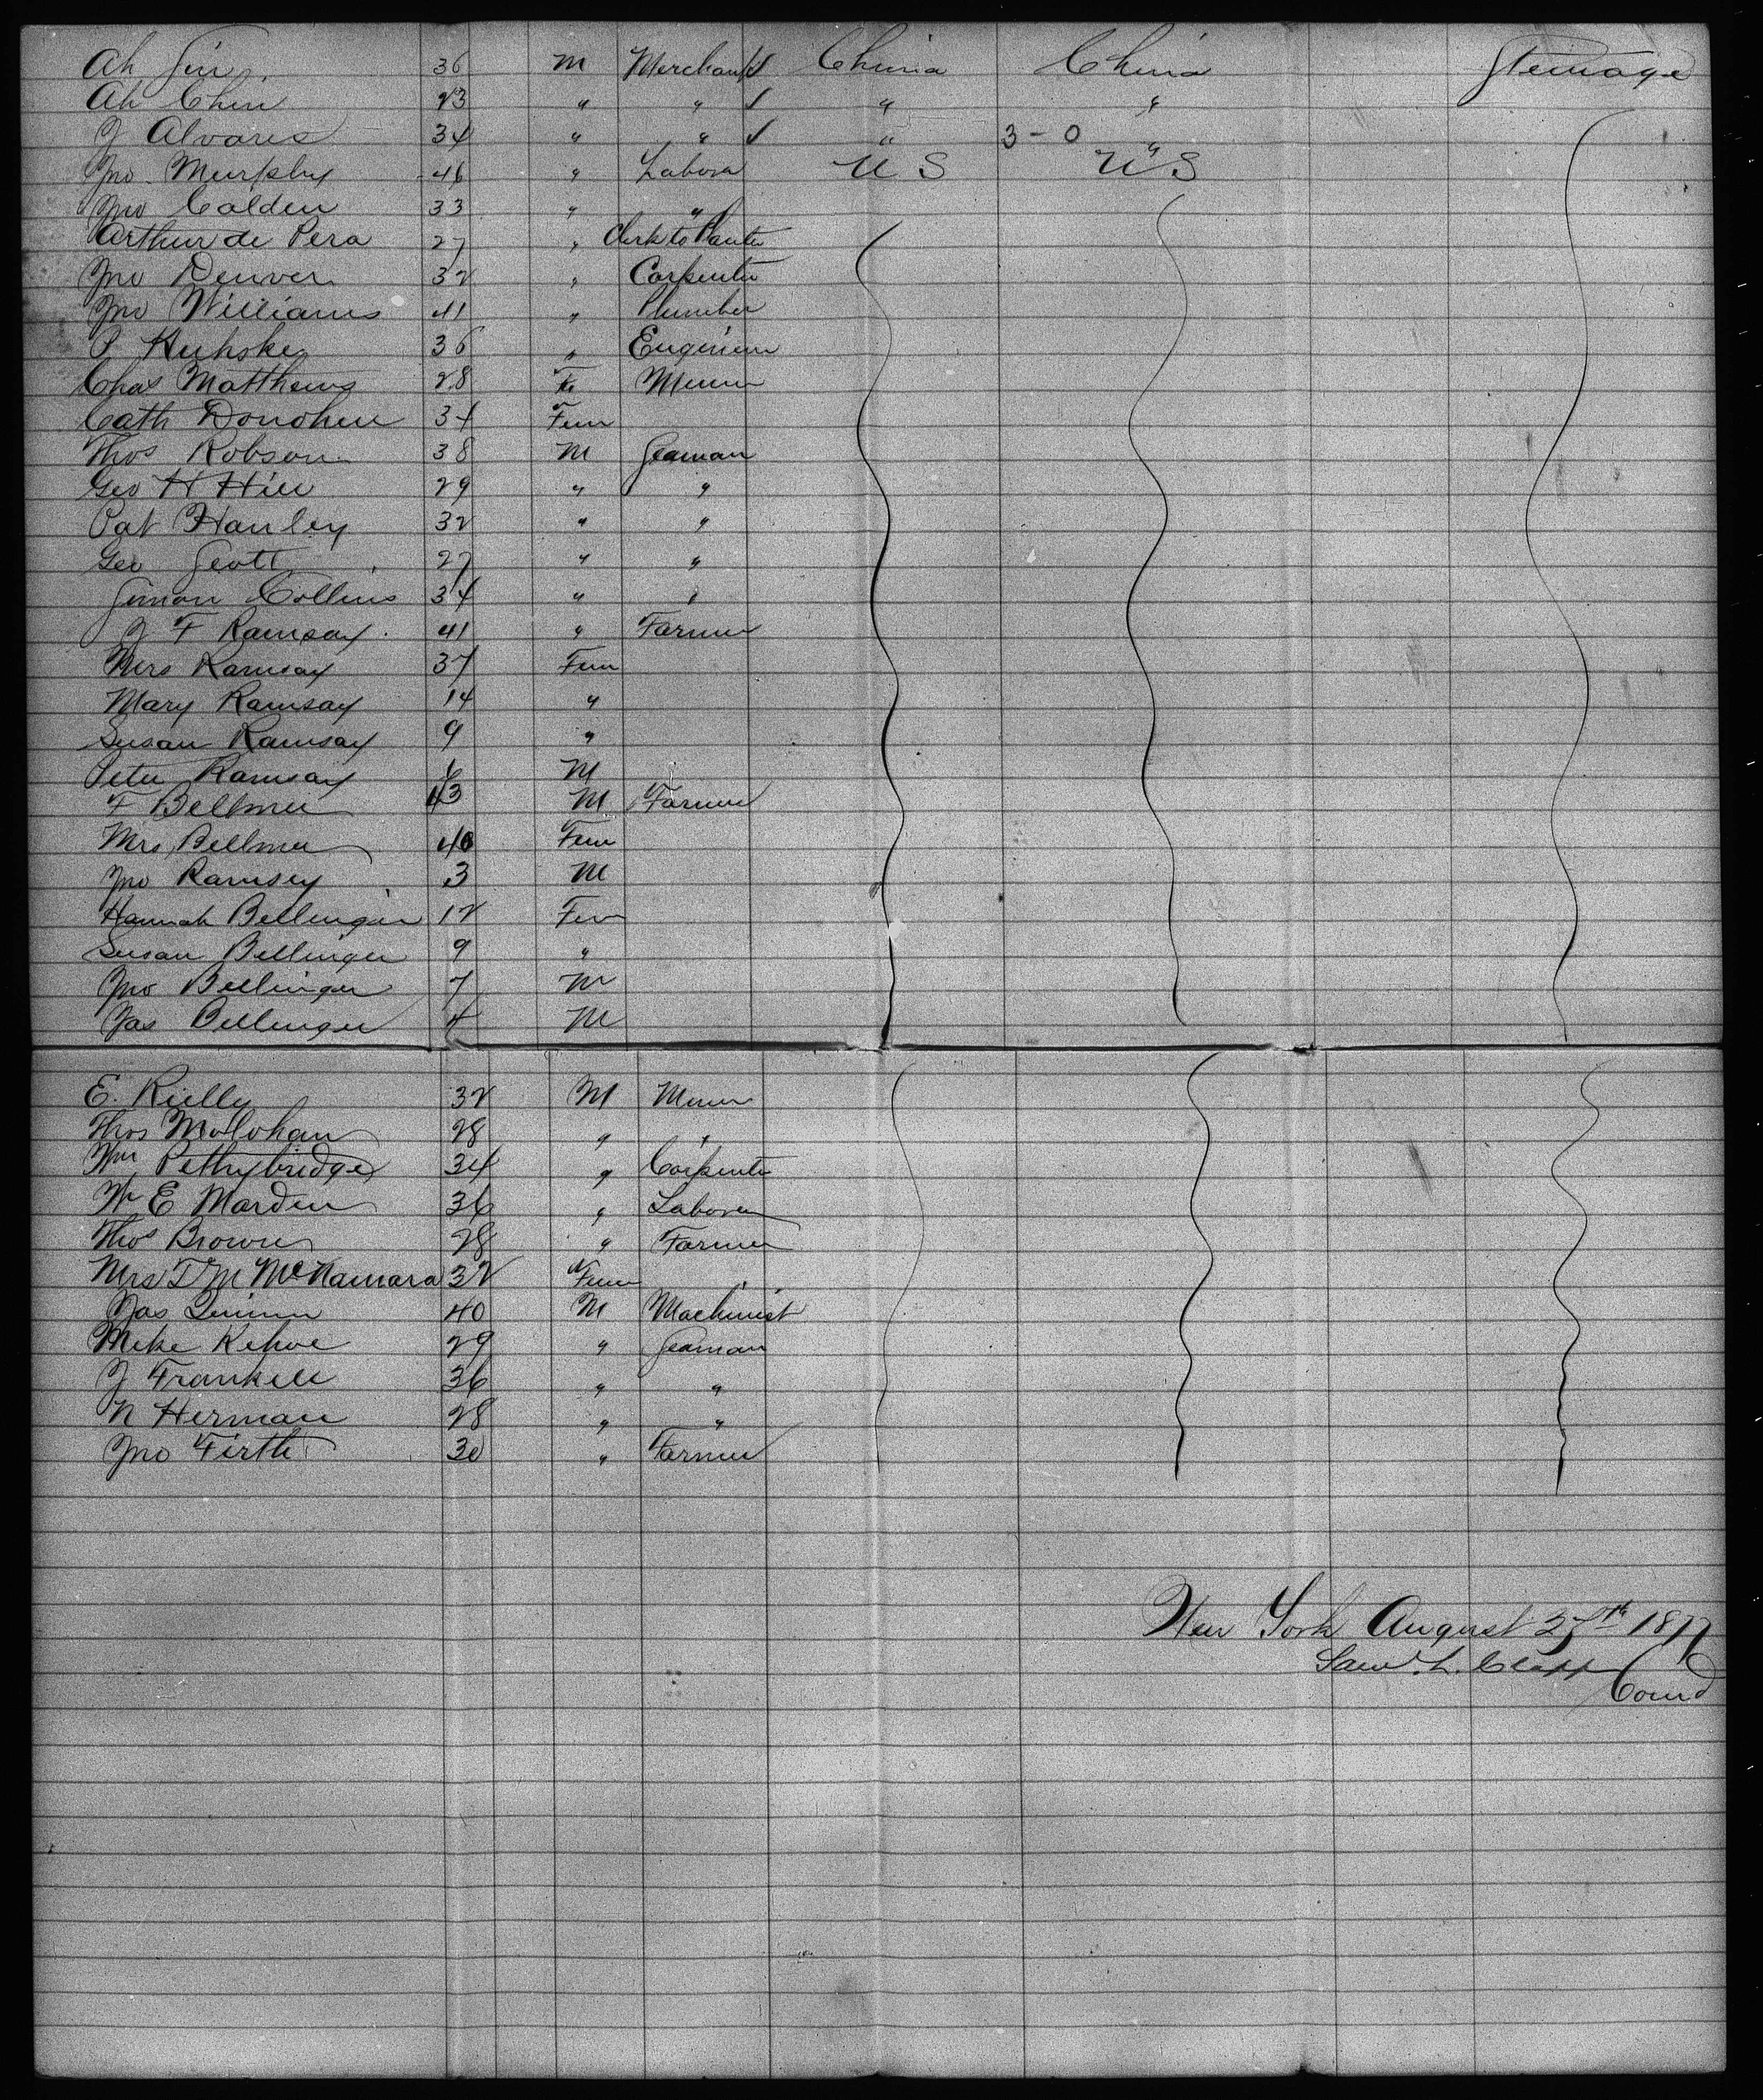 Ah Sin 36 M Merchant ✓ China China Steerage
Ah Chin 23 " " ✓ " "
J Alvares 34 " " ✓ " 3 - 0 "
Jno Murphy 46 " Labora U S U S
Jno Colden 33 " "
Arthur de Pera 27 " Clerk to
Jno Denver 32 " Carpenter
Jno Williams 41 " Plumber
P 36 " Engineer
Chas Matthews 28 Fe Miner
Cath Donohue 34 Fem
Thos Robson 38 M Seaman
Geo H Hill 29 " "
Pat Hanley 32 " "
Geo Scott 27 " "
Simon Collins 34 " "
J F Ramsay 41 " Farmer
Mrs Ramsay 37 Fem
Mary Ramsay 14 "
Susan Ramsay 9 "
Peter Ramsay 6 M
F Bellmer 43 M Farmer
Mrs Bellmer 40 Fem
Jno Ramsey 3 M
Hannah Bellinger 12 Fem
Susan Bellinger 9 "
Jno Bellinger 7 M
Jas Bellinger 4 M
E. Rielly 32 M Miner
Thos 28 " "
Wm Pethybridge 34 " Carpenter
W E Marden 36 " Laborer
Thos Brown 28 " Farmer
Mrs T M McNamara 32 Fem
Jas Quinn 40 M Machinist
Mike Kehoe 29 " Seaman
J Frankell 36 " "
N Herman 28 " "
Jno Firth 30 " Farmer
New York August 27th 1877
Saml. L. Clapp
Comd